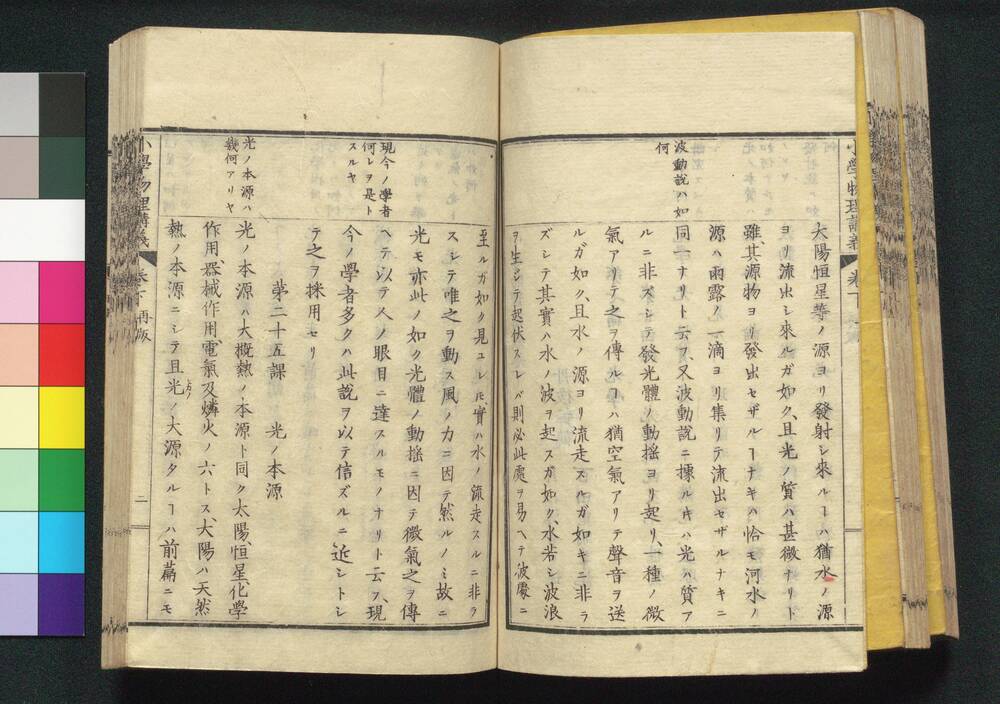 小學物理講義 卷下
波動說ハ如
何
太陽恒星等ノ源ヨリ發射シ來ルヿハ猶水ノ源
ヨリ流出シ來ルガ如ク、且光ノ質ハ甚微ナリト
雖、其源物ヨリ發出セザルヿナキハ恰モ河水ノ
源ハ雨露ノ一滴ヨリ集リテ流出セザルナキニ
同一ナリト云フ、又波動說ニ據ルキハ光ハ質ア
ルニ非ズシテ發光體ノ動搖ヨリ起リ、一種ノ微
氣アリテ之ヲ傳ルヿハ猶空氣アリテ聲音ヲ送
ルガ如ク、且水ノ源ヨリ流走スルガ如キニ非ラ
ズシテ其實ハ水ノ波ヲ起スガ如ク、水若シ波浪
ヲ生シテ起伏スレバ則必此處ヲ易ヘテ彼處ニ
現今ノ學者
何レヲ是ト
スルヤ
光ノ本源ハ
幾何アリヤ
至ルガ如ク見ユレ𪜈、實ハ水ノ流走スルニ非ラ
ズシテ唯之ヲ動ス風ノ力ニ因テ然ルノミ故ニ
光モ亦此ノ如ク光體ノ動搖ニ因テ微氣之ヲ傳
ヘテ以テ人ノ眼目ニ達スルモノナリト云フ、現
今ノ學者多クハ此說ヲ以テ信ズルニ近シトシ
テ之ヲ採用セリ
第二十五課 光ノ本源
光ノ本源ハ大槪熱ノ本源ト同ク太陽、恒星、化學
作用、器械作用、電氣及燐火ノ六トス、大陽ハ天然
熱ノ本源ニシテ且光ノ大源タルヿハ前篇ニモ
小學物理講義 卷下 再版
二